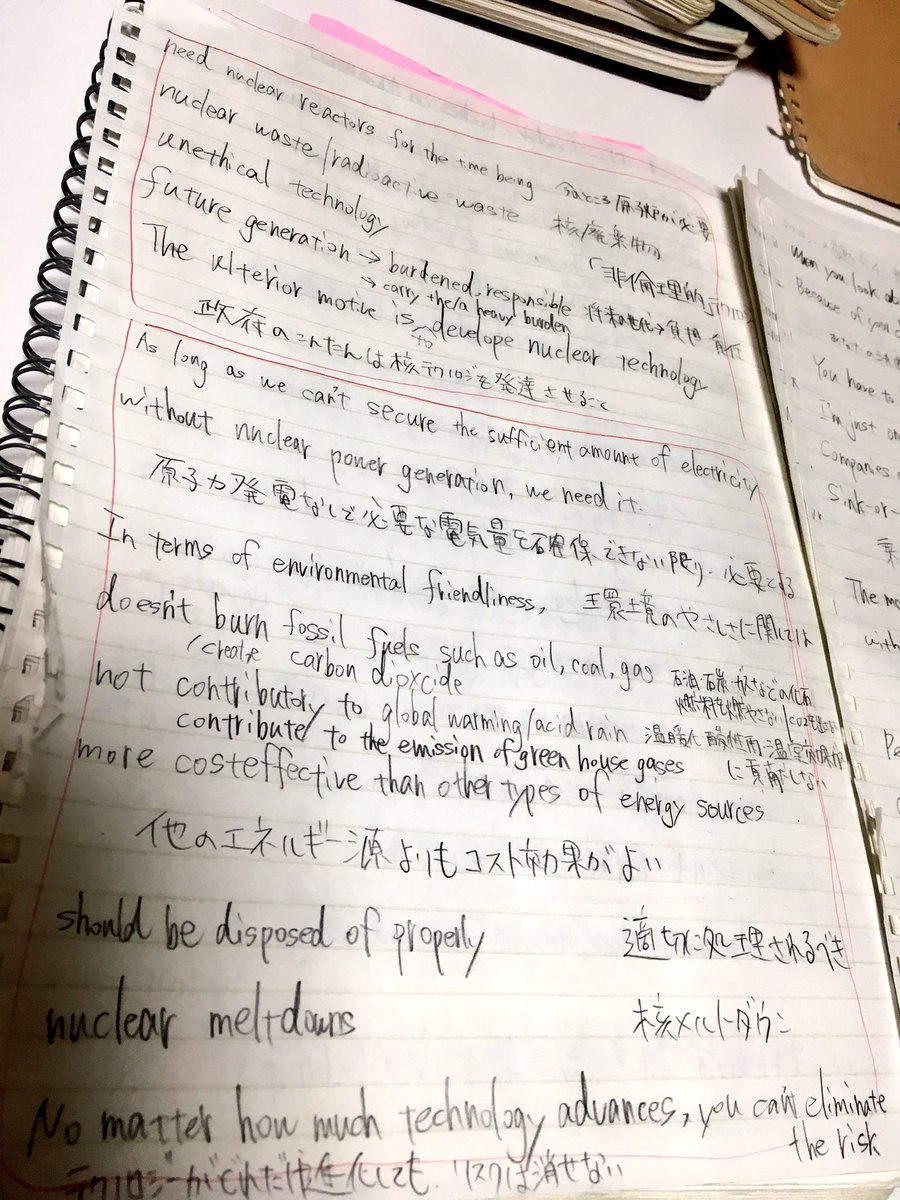 need nuclear reactors for the time being 今のところ原子炉が必要
nuclear waste/radioactive waste 核廃棄物
unethical technology 「非倫理的」テクノロジ
future generation → burdened. responsible 将来の世代→負担 責任
→ carry the/a heavy burden
The ulterior motive is to develope nuclear technology
政府のこんたんは核テクロジを発達させること
As long as we can't secure the sufficient amount of electricity
without nuclear power generation, we need it.
原子力発電なしで必要な電気量を確保できない限り、必要となる
In terms of environmental friendliness, 環境のやさしさに関しては
doesn't burn fossil fuels such as oil, coal, gas 石油 石炭 ガスなどの化石
/create carbon dioxcide 燃料を燃やさない/CO2を出さ
not contributory to global warming/acid rain 温暖化 酸性雨 温室効果
contribute/ to the emission of green house gases に貢献しない
more costeffective than other types of energy sources
他のエネルギー源よりもコスト効果がよい
should be disposed of properly 適切に処理されるべき
nuclear meltdowns 核メルトダウン
No matter how much technology advances, you can't eliminate
the risk
テクロジーがどれだけ進化しても、リスクは消せない
when you look
Because of you
You have to
I'm just on
Companies
Sink-or-
The mo
with